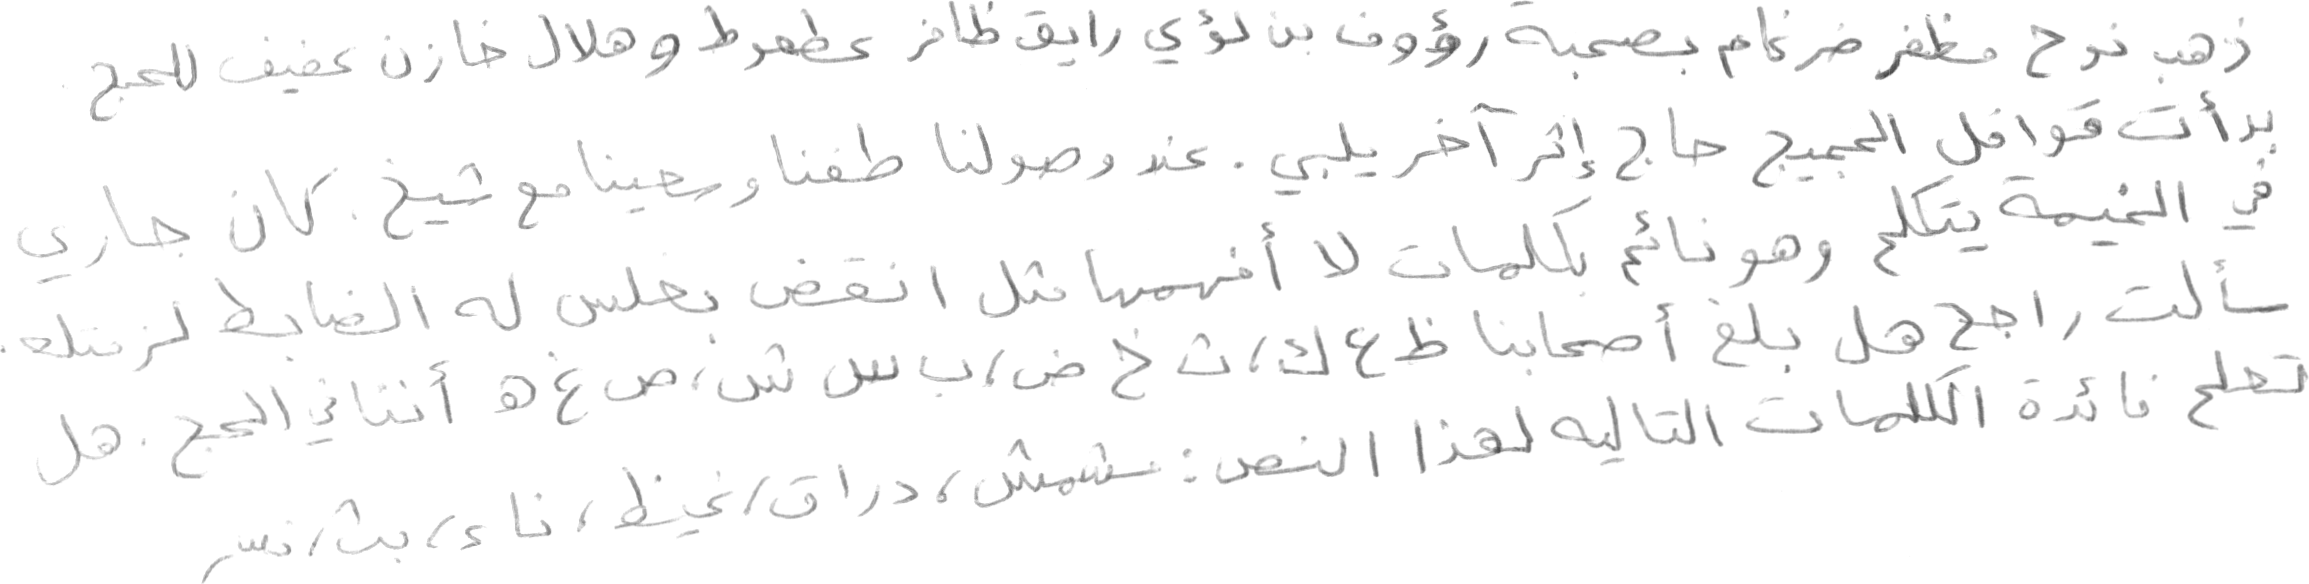 ذهب نوح مظفر ضرغام بصحبة رؤوف بن لؤي رايق ظافر عطعوط وهلال خازن عفيف للحج
بدأت قوافل الحجيج حاج إثر آخر يلبي . عند وصولنا طفنا وسعينا مع شيخ . كان جاري
في الخيمة يتكلم وهو نائم بكلمات لا أفهمها مثل انقض بغلس له الضابط لزمتله .
سألت راجح هل بلغ أصحابنا ظ ع ك ، ث خ ض ، ب س ش ، ص غ ه أننا في الحج . هل
تعلم فائدة الكلمات التاليه لهذا النص : مشمش ، دراق ، غيظ ، ناء ، بث ، نسر